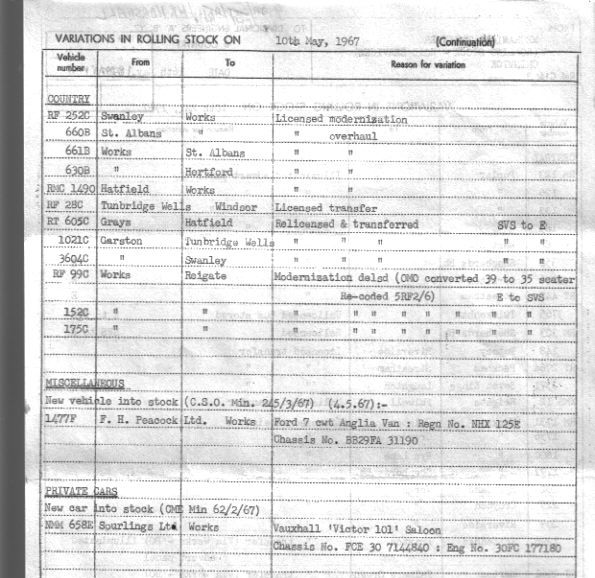 VARIATIONS IN ROLLING STOCK ON 10th May, 1967 (Continuation)
Vehicle number From To Reason for variation
COUNTRY
RF 252C Swanley Works Licensed modernization
660B St. Albans " " overhaul
661B Works St. Albans " "
630B " Hertford " "
RMC 1490 Hatfield Works " "
RF 28C Tunbridge Wells Windsor Licensed transfer
RT 605C Grays Hatfield Relicensed & transferred SVS to E
1021C Garston Tunbridge Wells " " " " "
3604C " Swanley " " " " "
RF 99C Works Reigate Modernization delsd (OMO converted 39 to 35 seater
Re-coded 5RF2/6) E to SVS
152C " " " " " " " " " " "
175C " " " " " " " " " " "
MISCELLANEOUS
New vehicle into stock (C.S.O. Min. 245/3/67) (4.5.67):-
1477F F. H. Peacock Ltd. Works Ford 7 cwt Anglia Van : Regn No. NHX 125E
Chassis No. BB29FA 31190
PRIVATE CARS
New car into stock (CME Min 62/2/67)
NMM 658E Sourlings Ltd Works Vauxhall 'Victor 101' Saloon
Chassis No. FCE 30 7144840 : Eng No. 30FC 177180